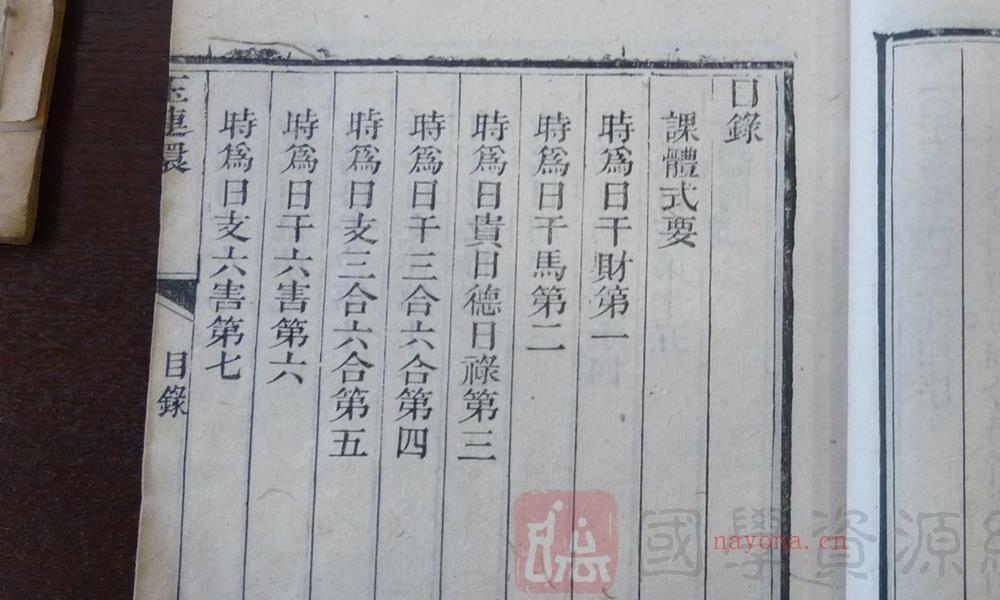 目錄
課體式要
時爲日干財第一
時爲日干馬第二
時爲日貴日德日祿第三
時爲日干三合六合第四
時爲日支三合六合第五
時爲日干六害第六
時爲日支六害第七
玉連環
目錄
國學資源
nayona.cn